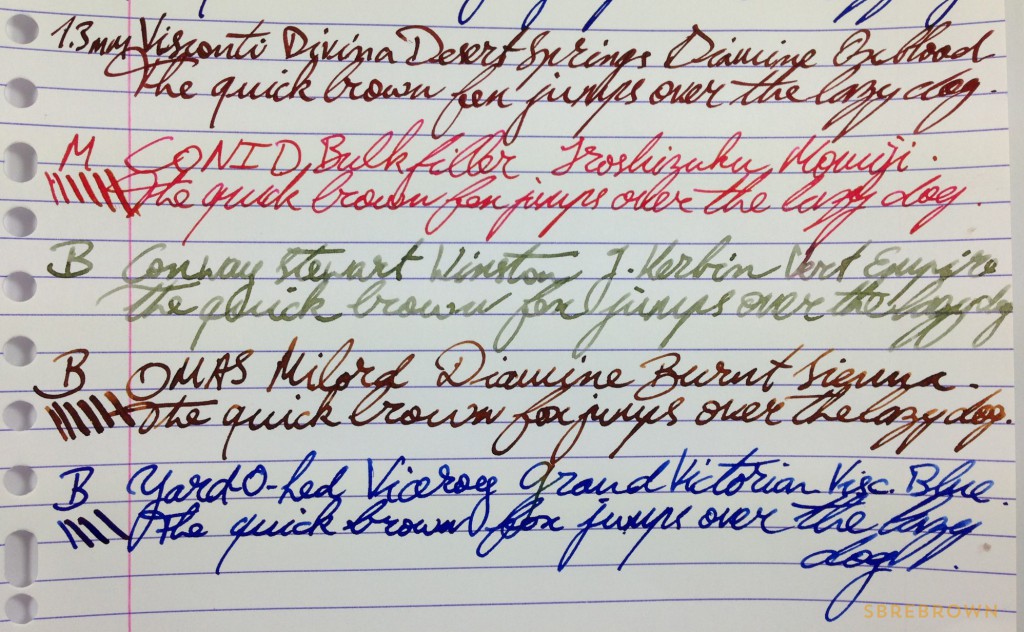 1.3mm Visconti Divina Desert Springs Diamine Oxblood
The quick brown fox jumps over the lazy dog.
M CONID Bulkfiller Iroshizuku Momiji.
The quick brown fox jumps over the lazy dog.
B Conway Stewart Winston J. Herbin Vert Empire
the quick brown fox jumps over the lazy dog
B OMAS Milord Diamine Burnt Sienna.
The quick brown fox jumps over the lazy dog.
B Yard-O-Led Viceroy Grand Victorian Visc. Blue.
The quick brown fox jumps over the lazy
dog.
SBREBROWN